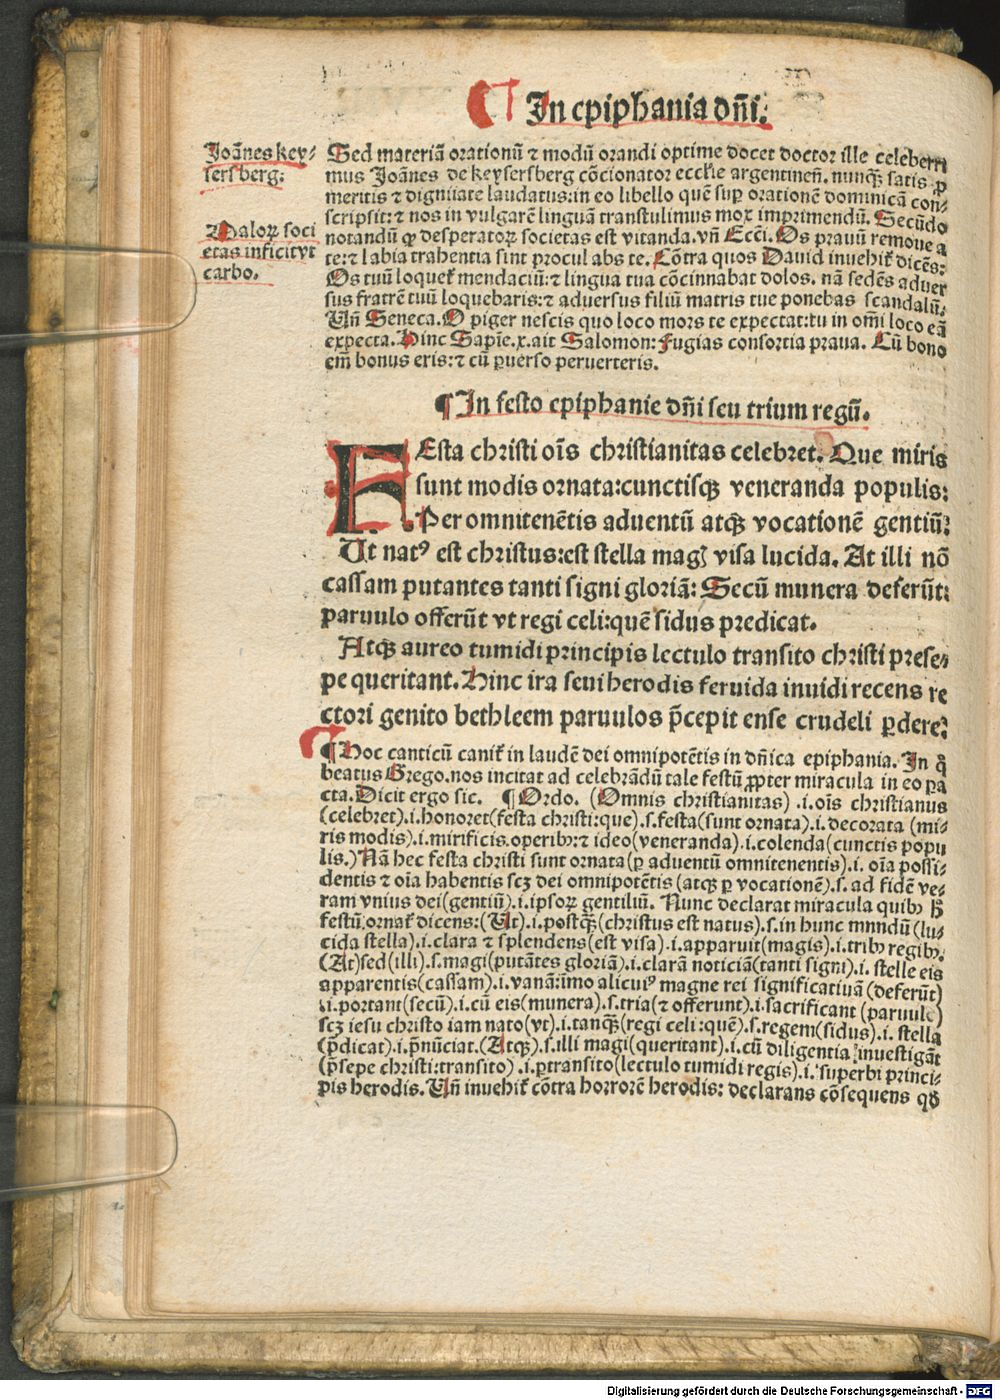 In epiphania dñi.
Joānes key⸗
sersberg:
Maloꝝ soci
etas inficit vt
carbo.
Sed materiā orationū ⁊ modū orandi optime docet doctor ille celeberri
mus Joānes de keysersberg cōcionator ecclie argentineñ. nunqꝫ satis ꝓ
meritis ⁊ dignitate laudatus:in eo libello quē suꝑ orationē dominicā con⸗
scripsit:⁊ nos in vulgarē linguā transtulimus mox imprimendū. Secūdo
notandū ꝙ desperatoꝝ societas est vitanda.vñ Ecci. Os prauū remoue a
te:⁊ labia trahentia sint procul abs te. Cōtra quos Dauid inuehit̉ dicēs:
Os tuū loquet̉ mendaciū:⁊ lingua tua cōcinnabat dolos. nā sedēs aduer
sus fratrē tuū loquebaris:⁊ aduersus filiū matris tue ponebas scandalū.
Uñ Seneca. O piger nescis quo loco mors te expectat:tu in om̄i loco eā
expecta. Hinc Sapīe.x.ait Salomon: Fugias consortia praua. Cū bono
em̄ bonus eris:⁊ cū ꝑuerso peruerteris.
¶ In festo epiphanie dñi seu trium regū.
FEsta christi oīs christianitas celebret. Que miris
sunt modis ornata:cunctisqꝫ veneranda populis:
Per omnitenētis aduentū atqꝫ vocationē gentiū:
Ut natꝰ est christus:est stella magꝭ visa lucida. At illi nō
cassam putantes tanti signi gloriā: Secū munera deferūt:
paruulo offerūt vt regi celi:quē sidus predicat.
Atqꝫ aureo tumidi principis lectulo transito christi prese⸗
pe queritant. Hinc ira seui herodis feruida inuidi recens re
ctori genito bethleem paruulos p̄cepit ense crudeli ꝑdere:
¶ Hoc canticū canit̉ in laudē dei omnipotētis in dñica epiphania. In q̊
beatus Grego.nos incitat ad celebrādū tale festū ꝓpter miracula in eo ꝑa
cta. Dicit ergo sic. ¶ Ordo. (Omnis christianitas) .i.oīs christianus
(celebret).i.honoret(festa christi:que).s.festa(sunt ornata).i.decorata (mi⸗
ris modis).i.mirificis operibꝫ:⁊ ideo(veneranda).i.colenda(cunctis popu
lis.) Nā hec festa christi sunt ornata(ꝑ aduentū omnitenentis).i. oīa possi⸗
dentis ⁊ oīa habentis scꝫ dei omnipotētis (atqꝫ ꝑ vocationē).s. ad fidē ve⸗
ram vnius dei(gentiū).i.ipsoꝝ gentiliū. Nunc declarat miracula quibꝫ ħ
festū ornat̉ dicens:(Ut).i.postqꝫ(christus est natus).s.in hunc mnndū(lu⸗
cida stella).i.clara ⁊ splendens(est visa).i.apparuit(magis).i.tribꝫ regibꝫ.
(At)sed(illi).s.magi(putātes gloriā).i.clarā noticiā(tanti signi).i. stelle eis
apparentis(cassam).i.vanā:īmo alicuiꝰ magne rei significatiuā(deferūt)
.i.portant(secū).i.cū eis(munera).s.tria(⁊ offerunt).i.sacrificant (paruulo)
scꝫ iesu christo iam nato(vt).i.tanqꝫ(regi celi:quē).s.regem(sidus).i. stella
(p̄dicat).i.p̄nūciat.(Atqꝫ).s.illi magi(queritant).i.cū diligentia inuestigāt
(p̄sepe christi:transito) .i.ꝑtransito(lectulo tumidi regis).i. superbi princi⸗
pis herodis. Uñ inuehit̉ cōtra horrorē herodis: declarans cōsequens qđ
Digitalisierung gefördert durch die Deutsche Forschungsgemeinschaft - DFG